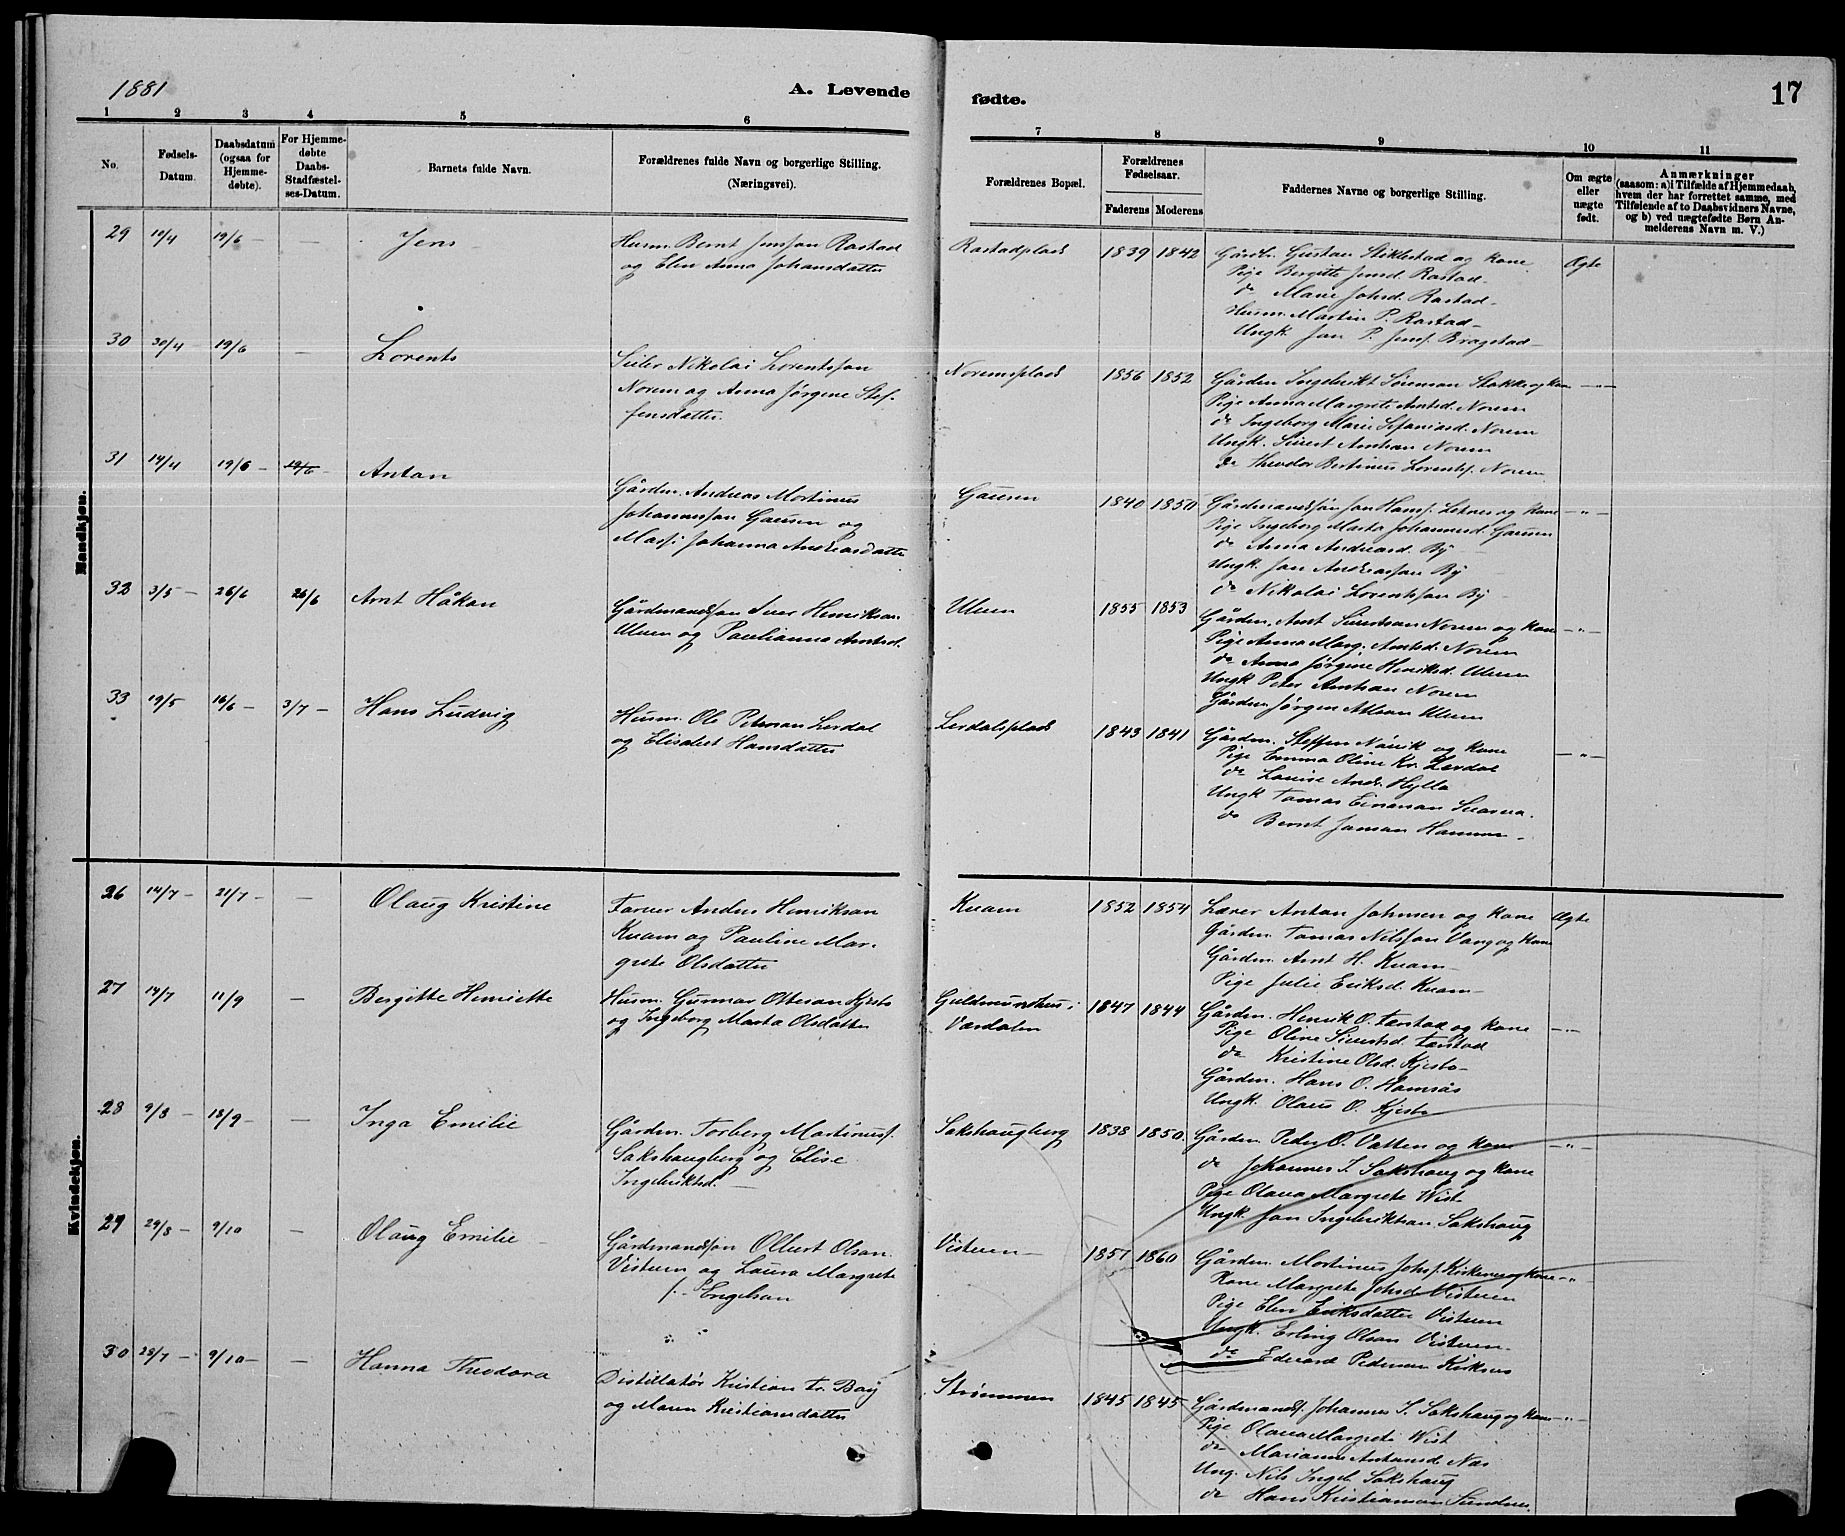 1881
A. Levende
fødte.
17
1 2 3 4 5 6 7 8 9 10 11
No.
Fødsels-Datum.
Daabsdatum (ogsaa for Hjemme-døbte).
For Hjemme-døbte Daabs-Stadfæstel-ses-Datum.
Barnets fulde Navn.
Forældrenes fulde Navn og borgerlige Stilling. (Næringsvei).
Forældrenes Bopæl.
Forældrenes Fødselsaar.
Faderens Moderens
Faddernes Navne og borgerlige Stilling.
Om ægte eller uægte født.
Anmærkninger
(saasom: a) i Tilfælde af Hjemmedaab, hvem der har forrettet samme, med Tilføiende af to Daabsvidners Navne, og b) ved uægtefødte Børn An-melderens Navn m. V.)
Mandkjøn.
29 19/6 — — Jens
Husm. Bernt Jensson Rostad
og Elen Anna Johansdatter
Rostadplads 1839 1842
Gårdbr. Gustav Stiklestad og Kone Ægte
Pige Bergitte Jensd. Rostad
do Marie Johsd. Rostad
Husm. Martin P. Rostad
Ungk. Jan P. Jenss. Bragstad
30 30/4 19/6 — Lorents
Nikolai Lorentssøn
Norem og Anna Jørgine Stef-
fensdatter
Noremsplads 1856 1852
Gårdm. Ingebrikt Sørenson Stokke og Kone — " —
Pige Anna Margrete Arntsd. Norem
do Ingeborg Marie Norem
Ungk. Sivert Arntsen Norem
do Theodor Bertinus Lorents. Norem
31 14/4 19/6 — 19/6 — Anton
Gårdm. Andreas Mortinus
Johannson Gausen og
Johanna Andreasdatter
Gausen 1840 1850
Gårdmandssøn Jon Hanss. Leknes og Kone — " —
Pige Ingeborg Marta Johannesd. Gausen
do Anna Andreasd. By
Ungk. Jon Andreasson By
do Nikolai Lorentsson By
32 3/5 — 26/6 26/6 Arnt Håkon
Gårdmandssøn Iver Henrikson
Ulven og Paulianna Arntsd.
Ulven 1855 1853
Gårdm. Arnt Sivertsen Norem og Kone — " —
Pige Anna Marg. Arntsd. Norem
do Anna Jørgine Henriksd. Ulven
Ungk Peter Arntsen Norem
Gårdm. Jørgen Ulven
33 19/5 16/6 — 3/7 — Hans Ludvig
Husm. Ole Peterson Lerdal
og Elisabet Hansdatter
Lerdalsplads 1843 1841
Gårdm. Steffen og Kone — " —
Pige Emma Oline Kr. Lerdal
do Louise Andr. Hylla
Ungk Tomas Einarson
do Bernt Jonson
Kvindekjøn.
26 14/7 — 21/7 — — Olaug Kristine
Farver Anders Henrikson
Kvam og Pauline Mar-
grete Olsdatter
Kvam 1852 1854
Lærer Anton Johnsen og Kone Ægte
Gårdm. Tomas Nilsson Vang og Kone
Gårdm. Arnt H. Kvam
Pige Julie Eriksd. Kvam
27 14/7 11/9 — Bergitte Henriette
Husm. Gunnar Otteson Kjesbo
og Ingeborg Marta Olsdatter
Guldmundshus i
Værdalen
1847 1844
Gårdm. Henrik O. Tanstad og Kone — " —
Pige Oline Sivertsd. Tanstad
do Kristine Olsd. Kjesbo
Gårdm. Hans O. Hamsås
Ungk. Olaus O. Kjesbo
28 9/8 — 18/9 — — Inga Emilie
Gårdm. Torberg Martinuss.
Sakshaugberg og Elise
Ingebriktsd.
Sakshaugberg 1838 1850
Gårdm. Peder O. Vatten og Kone — " —
do Johannes I. Sakshaug og Kone
Pige Olava Margrete Wist
Ungk. Jon Ingebriktsen Sakshaug
29 29/8 — 9/10 — Olaug Emilie
Gårdmandssøn Olbert Olson
Visteren og Laura Margrete
f. Engelson
Visteren 1857 1860
Gårdm. Mortinus Johs. Kirkenes og Kone — " —
Kone Margrete Johsd. Visteren
Pige Elen Eriksdatter Visteren
Ungk. Erling Olson Visteren
do Edevard Pedersen Kirknes
30 28/7 — 9/10 — — Hanna Theodora
Distillatør Kristian Fr. Bay
og Maren Kristiansdatter
Strømmen 1845 1845
Gårdmands. Johannes I. Sakshaug og Kone — " —
Pige Olava Margrete Wist
do Marianne Antonsd. Næs
Ung. Nils Ingeb. Sakshaug
do Hans Kristianson Sundnes